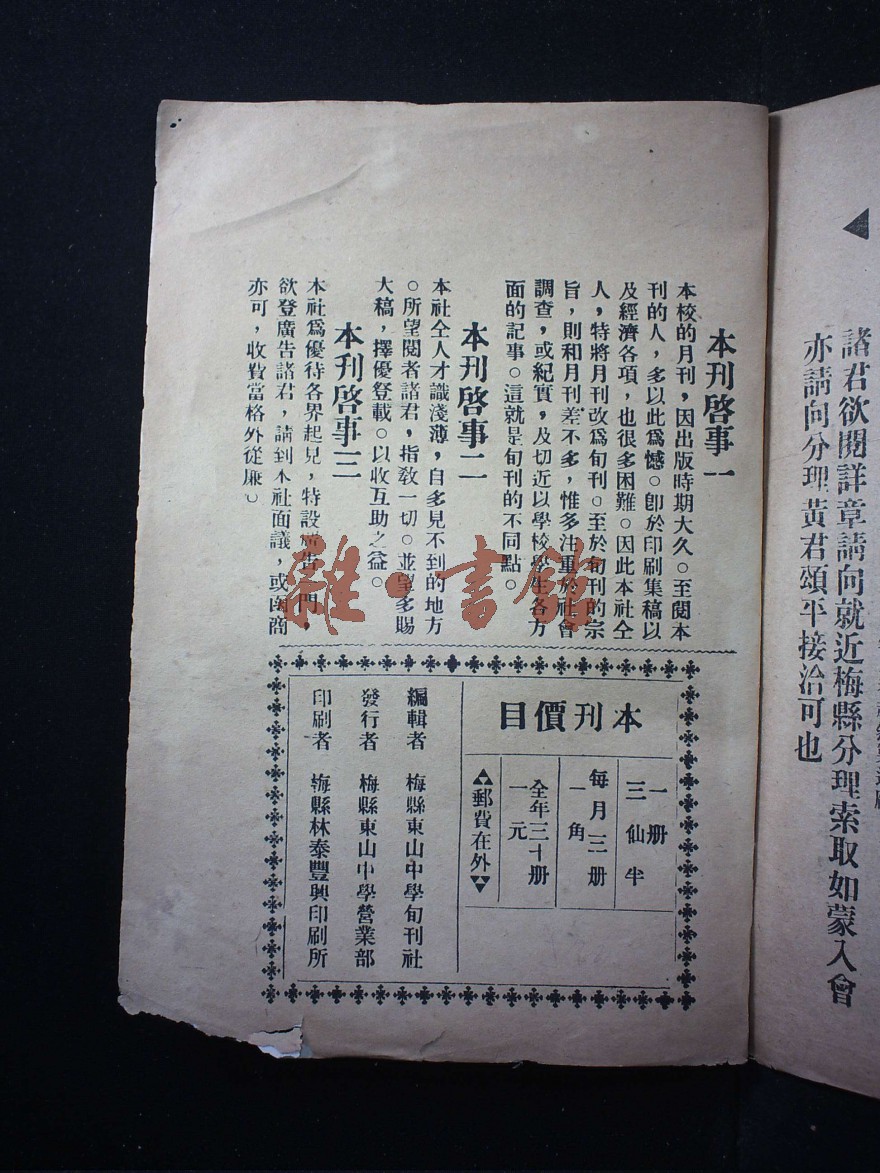 諸君欲閱詳章請向就近梅縣分理索取如蒙入會
亦請向分理黃君頌平接洽可也
本刊啓事一
本校的月刊，因出版時期大久。至閱本
刊的人，多以此爲憾。卽於印刷集稿以
及經濟各項，也很多困難。因此本社仝
人，特將月刊改爲旬刊。至於旬刊的宗
旨，則和月刊差不多，惟多注重於社會
調查，或紀實，及切近以學校學生各方
面的記事。這就是旬刊的不同點。
本刊啓事二
本社仝人才識淺薄，自多見不到的地方
。所望閱者諸君，指敎一切。並望多賜
大稿，擇優登載。以收互助之益。
本刊啓事三
本社爲優待各界起見，特設廣告一門，
欲登廣告諸君，請到本社面議，或函商
亦可，收費當格外從廉。
本刊價目
一册
三仙半
每月三册
一角
全年三十册
一元
郵費在外
編輯者 梅縣東山中學旬刊社
發行者 梅縣東山中學營業部
印刷者 梅縣林泰豐興印刷所
雜·書館